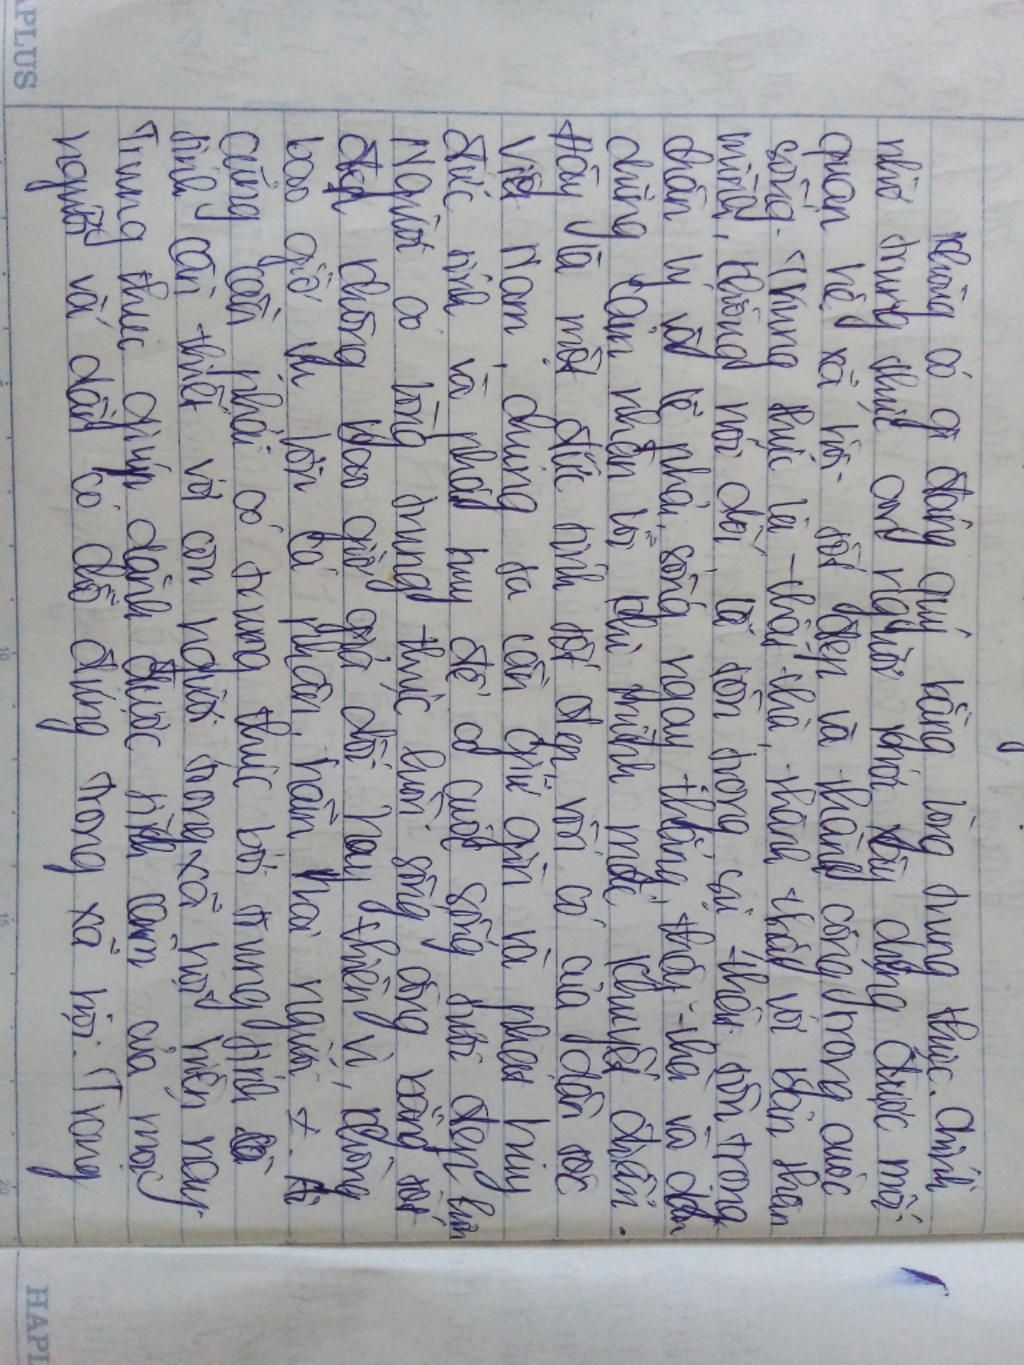 Không có gì đáng quý bằng lòng trung thực. Chính
nhờ trung thực con người mới xây dựng được mối
quan hệ xã hội tốt đẹp và thành công trong cuộc
sống. Trung thực là thật thà, thành thật với bản thân
mình, không nói dối, là tôn trọng sự thật, tôn trọng
chân lý với lẽ phải, sống ngay thẳng, thật thà và dám
dũng cảm nhận lỗi khi mình mắc khuyết điểm.
Đây là một đức tính tốt đẹp vốn có của dân tộc
Việt Nam, chúng ta cần giữ gìn và phát huy
đức tính và phát huy để cuộc sống tươi đẹp hơn
Người có lòng trung thực luôn sống công bằng tốt
đẹp không bao giờ giả dối hay thiên vị, không
bao giờ vụ lợi cá nhân, hãm hại người ≠. Ai
cũng cần phải có trung thực bởi trung tính là
tính cần thiết với con người trong xã hội hiện nay
Trung thực giúp dành được tình cảm của mọi
người và dần có chỗ đứng trong xã hội. Trong
HAPLUS
HAPL
5
10
15
20